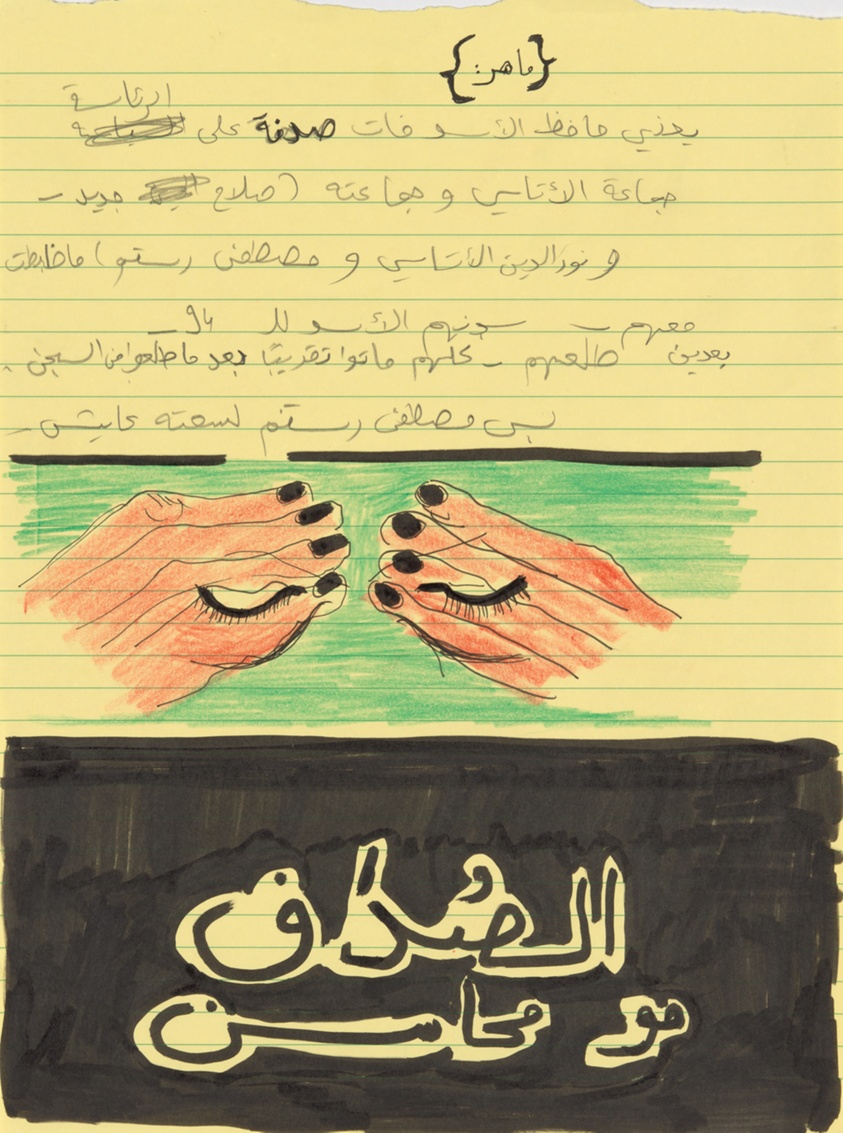 {ماهر:}
الرئاسة
يعني حافظ الأسد فات صدفة على
جماعة الأتاسي وجماعته (صلاح جديد -
ونور الدين الأتاسي و مصطفى رستم) ما ظبطت
معهم - سجنهم الأسد للـ 94 -
بعدين طلعهم - كلهم ماتوا تقريبًا بعد ما طلعوا من السجن.
بس مصطفى رستم لسعته عايش -
الصُدف
مو محاسن